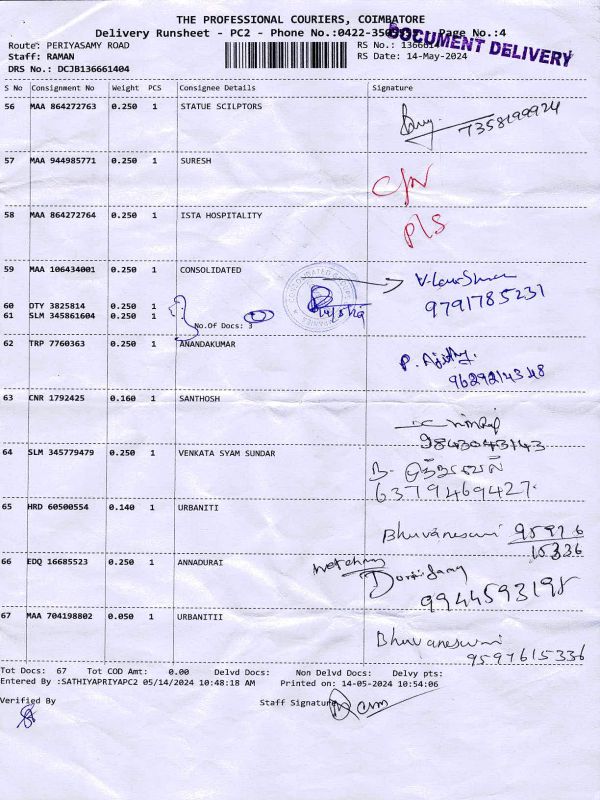 THE PROFESSIONAL COURIERS, COIMBATORE
Delivery Runsheet - PC2 - Phone No.:0422-350 Page No.:4
DOCUMENT DELIVERY
Route: PERIYASAMY ROAD RS No.: 1366614
Staff: RAMAN RS Date: 14-May-2024
DRS No.: DCJB136661404
S No Consignment No Weight PCS Consignee Details Signature
56 MAA 864272763 0.250 1 STATUE SCILPTORS
7358199924
57 MAA 944985771 0.250 1 SURESH
C/N
58 MAA 864272764 0.250 1 ISTA HOSPITALITY
P/S
59 MAA 106434001 0.250 1 CONSOLIDATED
9791785231
60 DTY 3825814 0.250 1
61 SLM 345861604 0.250 1
No.Of Docs: 3
62 TRP 7760363 0.250 1 ANANDAKUMAR
P. Ajithy.
9629214348
63 CNR 1792425 0.160 1 SANTHOSH
9843043143
64 SLM 345779479 0.250 1 VENKATA SYAM SUNDAR
6379469427.
65 HRD 60500554 0.140 1 URBANITI
Bhuvaneswari 95976
15336
66 EDQ 16685523 0.250 1 ANNADURAI
9944593198
67 MAA 704198802 0.050 1 URBANITII
Bhuvaneswari
9597615336
Tot Docs: 67 Tot COD Amt: 0.00 Delvd Docs: Non Delvd Docs: Delvy pts:
Entered By :SATHIYAPRIYAPC2 05/14/2024 10:48:18 AM Printed on: 14-05-2024 10:54:06
Verified By Staff Signature